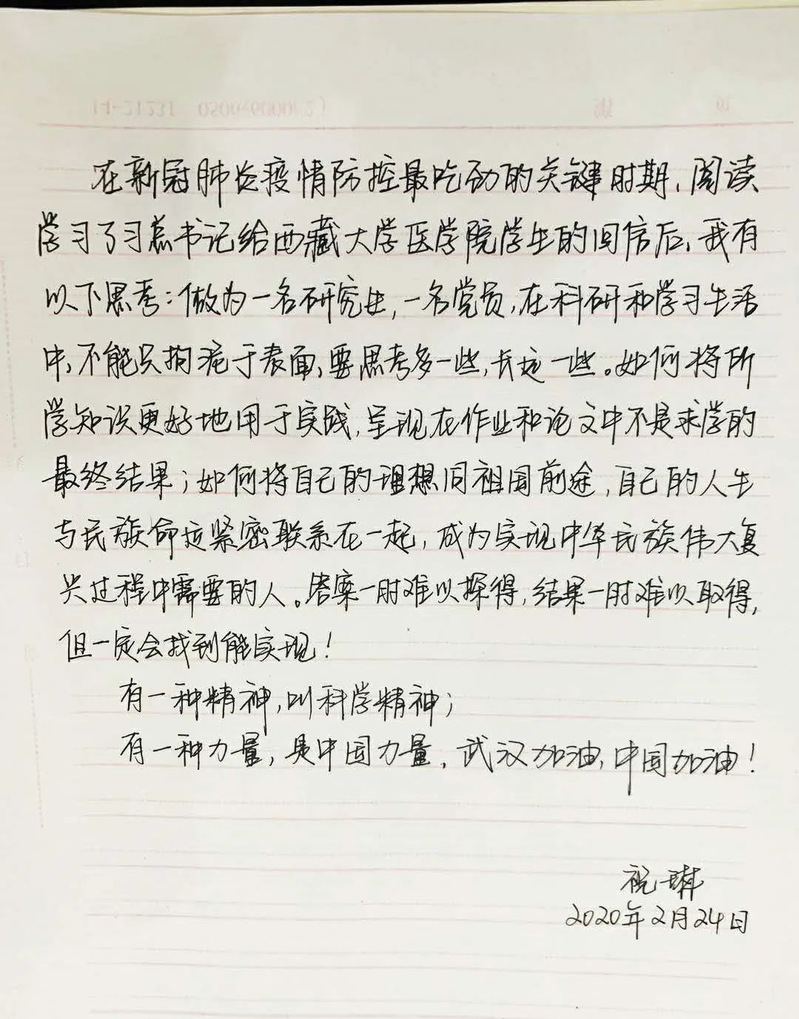 在新冠肺炎疫情防控最吃劲的关键时期，阅读
学习了习总书记给西藏大学医学院学生的回信后，我有
以下思考：做为一名研究生，一名党员，在科研和学习生活
中，不能只拘泥于表面，要思考多一些，长远一些。如何将所
学知识更好地用于实践，呈现在作业和论文中不是求学的
最终结果；如何将自己的理想同祖国前途，自己的人生
与民族命运紧密联系在一起，成为实现中华民族伟大复
兴过程中需要的人。答案一时难以探得，结果一时难以取得，
但一定会找到能实现！
有一种精神，叫科学精神；
有一种力量，是中国力量，武汉加油，中国加油！
祝一
2020年2月24日